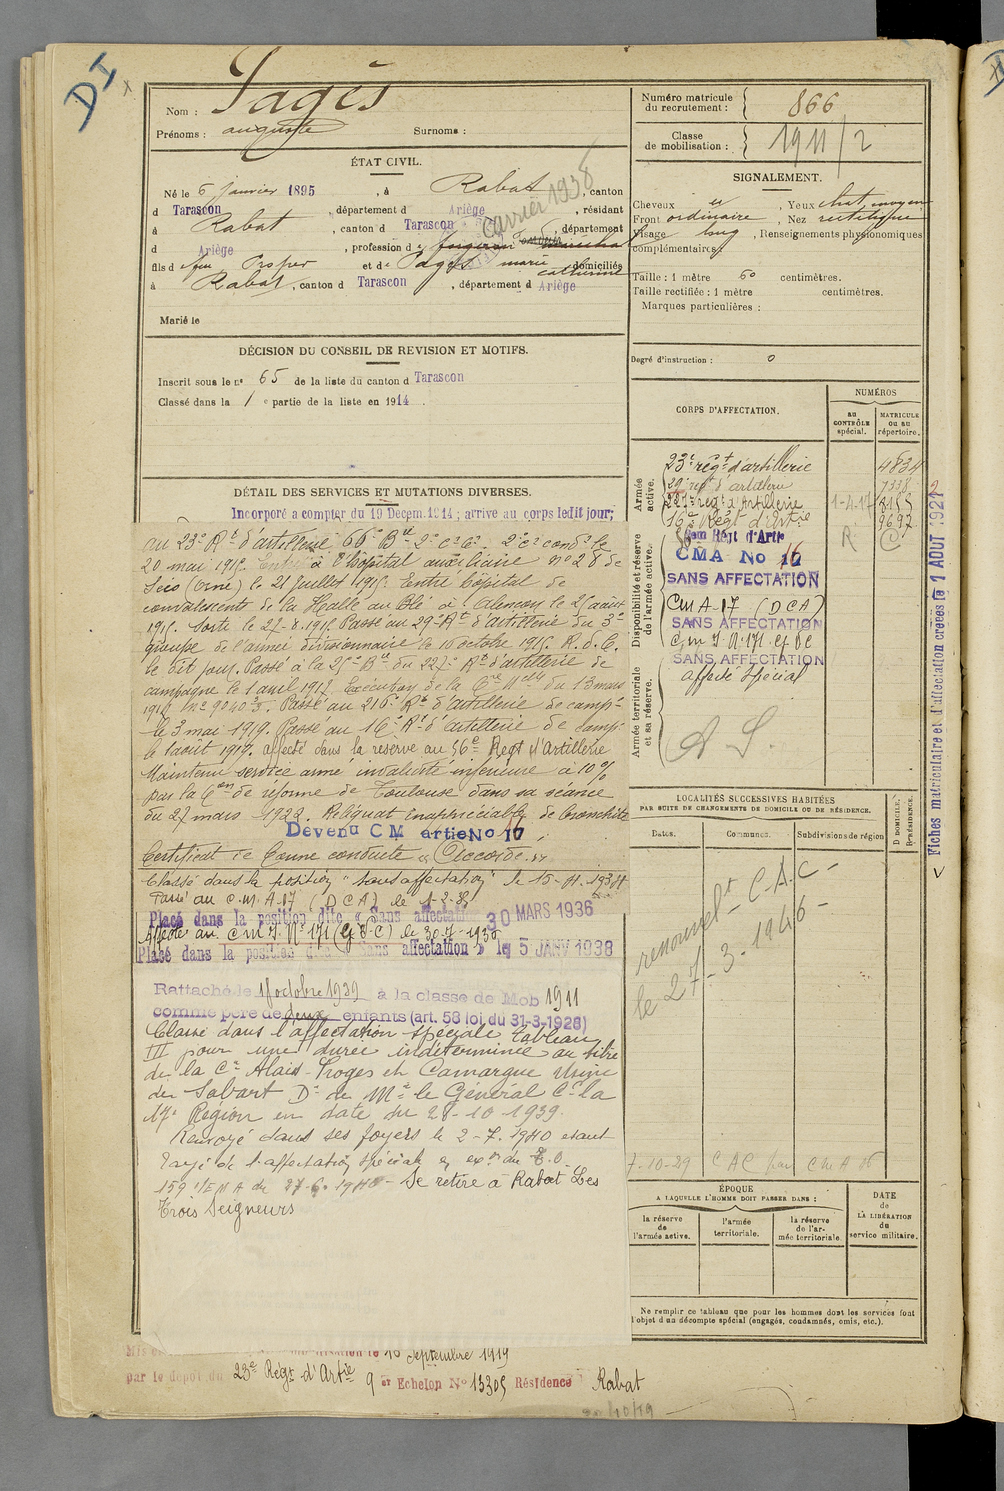 DI
Nom : Pagès
Prénoms : auguste Surnoms :
Numéro matricule du recrutement : 866
Classe de mobilisation : 1911/2
ÉTAT CIVIL.
Né le 6 janvier 1895, à Rabat, canton
d Tarascon, département d Ariège, résidant
à Rabat, canton d Tarascon, département
d Ariège, profession de forgeron
fils de feu Prosper et de Pagès marie catherine domiciliés
à Rabat, canton d Tarascon, département d Ariège
Marié le
Carrier 1938
SIGNALEMENT.
Cheveux et , Yeux chat. moyen
Front ordinaire, Nez rectiligne
Visage long, Renseignements physionomiques
complémentaires
Taille : 1 mètre 60 centimètres.
Taille rectifiée : 1 mètre centimètres.
Marques particulières :
Degré d'instruction : 0
DÉCISION DU CONSEIL DE REVISION ET MOTIFS.
Inscrit sous le nº 65 de la liste du canton d Tarascon
Classé dans la 1 e partie de la liste en 1914.
DÉTAIL DES SERVICES ET MUTATIONS DIVERSES.
Incorporé a compter du 19 Décem. 1914 ; arrive au corps ledit jour;
au 23e Rt d'artillerie 66e Bie 2e cr cr. 2e cr condr le
20 mai 1915. Entré à l'hôpital auxiliaire nº 28 de
Sées (Orne) le 21 juillet 1915. Entré hôpital de
convalescents de la Halle au Blé à Alençon le 25 août
1915. Sorti le 27-8-1915. Passé au 29e Rt d'artillerie du 3e
groupe de l'armée divisionnaire le 10 octobre 1915. R.d.C.
le dit jour. Passé à la 25e Bie du 227e Rt d'artillerie de
campagne le 1 avril 1917. Exécution de la Cre Melle du 13 mars
1917 nº 9040 . Passé au 216e Rt d'artillerie de camp-
le 3 mai 1919. Passé au 16e Rt d'artillerie de camp
le 1 août 1919. affecté dans la réserve au 56e Régt d'Artillerie
Maintenu service armé invalidité inférieure à 10%
par la Con de réforme de Toulouse dans sa séance
du 27 mars 1922. Reliquat inappréciable de bronchite
Devenu C M artie No 17
Certificat de bonne conduite "Accordé."
Classé dans la position "sans affectation" le 15-11-1934
Passé au C.M.A. 17 (DCA) le 1-2-35
Placé dans la position dite « Sans affectation 30 MARS 1936
Affecté au C M I Nº 171 (G S C) le 30-7-1936
Placé dans la position dite « Sans affectation » le 5 JANV 1938
Rattaché le 1 octobre 1939 à la classe de Mob 1911
comme père de deux enfants (art. 58 loi du 31-3-1928)
Classé dans l'affectation spéciale tableau
III pour une durée indéterminée au titre
de la Cie Alais Froges et Camargue Usine
de Sabart Dn de Mr le Général Ct la
17e Région en date du 28-10-1939.
Renvoyé dans ses foyers le 2-7-1940 étant
rayé de l'affectation spéciale en exon du T.O.
159 1/EMA du 27-6-1940 - Se retire à Rabat Les
Trois Seigneurs
CORPS D'AFFECTATION.
NUMÉROS
au CONTRÔLE spécial.
MATRICULE ou au répertoire.
Armée active.
23e régt d'artillerie 4834
29e regt d'artillerie 7338
227e regt d'Artillerie 1-4-17 8155
16e Régt d'Artie 9697
Disponibilité et réserve de l'armée active.
56em Régt d'Artie R C
CMA No 16
SANS AFFECTATION
CMA-17 (DCA)
SANS AFFECTATION
C M I N 171 G S C
SANS AFFECTATION
affecté spécial
Armée territoriale et sa réserve.
A S.
Fiches matriculaire et d'affectation créées le 1 AOUT 1921
LOCALITÉS SUCCESSIVES HABITÉES
PAR SUITE DE CHANGEMENTS DE DOMICILE OU DE RÉSIDENCE.
Dates. Communes. Subdivisions de région D DOMICILE. R RÉSIDENCE.
renouvelt C.A.C -
le 27-3-1946 -
7-10-29 CAC par CMA 16
ÉPOQUE
A LAQUELLE L'HOMME DOIT PASSER DANS :
la réserve de l'armée active.
l'armée territoriale.
la réserve de l'armée territoriale.
DATE de LA LIBÉRATION du service militaire.
Ne remplir ce tableau que pour les hommes dont les services font
l'objet d'un décompte spécial (engagés, condamnés, omis, etc.).
le 10 septembre 1919
par le dépôt du 23e Régt d'Artie 9 er Echelon No 13305 Résidence Rabat
30/10/19